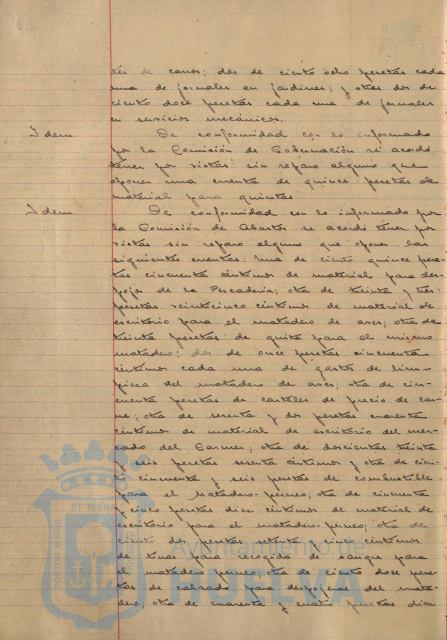 tes de carros; dos de ciento ocho pesetas cada
una de jornales en jardines; y otras dos de
ciento doce pesetas cada una de jornales
en servicios mecánicos.
Idem. De conformidad con lo informado
por la Comisión de Gobernación se acordó
tener por vistas sin reparo alguno que
oponer una cuenta de quince pesetas de
material para quintas.
Idem. De conformidad con lo informado por
la Comisión de Abastos se acordó tener por
vistas sin reparo alguno que oponer las
siguientes cuentas: Una de ciento quince pese-
tas cincuenta céntimos de material para des-
pojos de la Pescadería; otra de treinta y tres
pesetas veinticinco céntimos de material de
escritorio para el matadero de aves; otra de
treinta pesetas de para el mismo
matadero; dos de once pesetas cincuenta
céntimos cada una de gastos de lim-
pieza del matadero de aves; otra de cin-
cuenta pesetas de carteles de precio de car-
ne; otra de sesenta y dos pesetas cuarenta
céntimos de material de escritorio del mer-
cado del Carmen; otra de doscientas treinta
y seis pesetas sesenta céntimos y otra de cien-
to cincuenta y seis pesetas de combustible
para el Matadero público; otra de cincuenta
y cinco pesetas diez céntimos de material de
escritorio para el matadero público; otra de
ciento dos pesetas setenta y cinco céntimos
de tinas para recogida de sangre para
el matadero público; otra de ciento doce pese-
tas de calzado para despojeras del mata-
dero; otra de cuarenta y cuatro pesetas diez
PORTUS MARIS ET TERRAE CUSTODIA
Ayuntamiento de
HUELVA